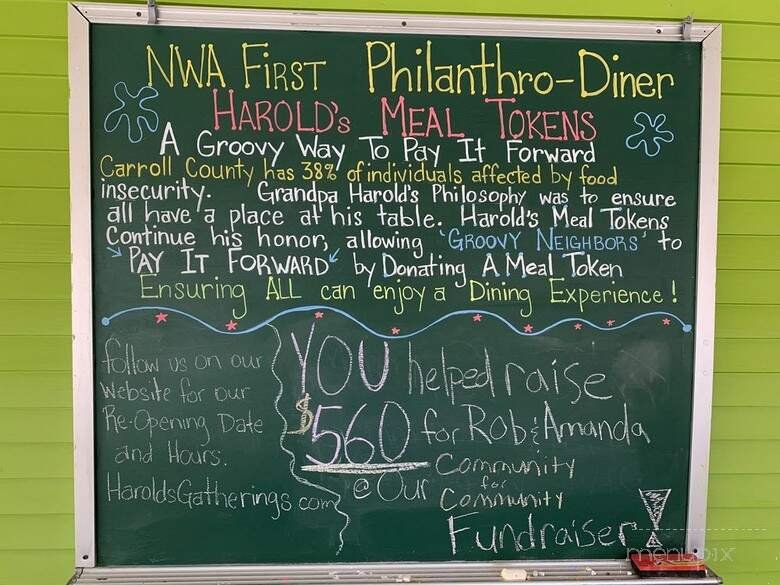 NWA First Philanthro-Diner
Harold's Meal Tokens
A Groovy Way To Pay It Forward
Carroll County has 38% of individuals affected by food
insecurity. Grandpa Harold's Philosophy was to ensure
all have a place at his table. Harold's Meal Tokens
Continue his honor, allowing "Groovy Neighbors" to
"Pay It Forward" by Donating A Meal Token
Ensuring ALL can enjoy a Dining Experience!
follow us on our
website for our
Re-Opening Date
and Hours.
HaroldsGatherings.com
YOU helped raise
$560 for Rob & Amanda
@ Our Community
for
Community
Fundraiser!
menupix